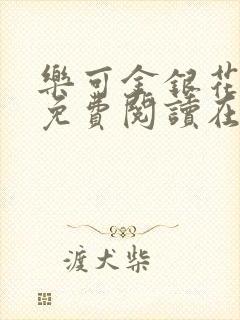 樂可金銀花
免費閱讀在
渡犬柴